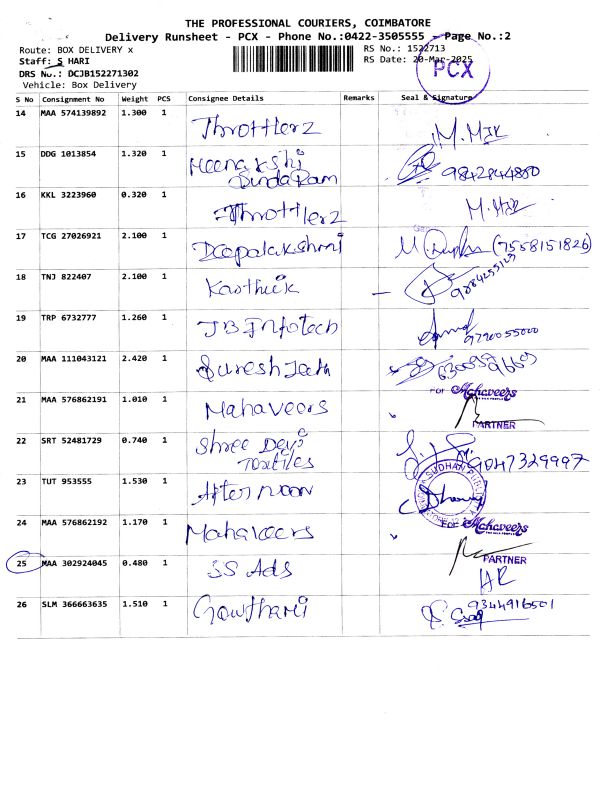 THE PROFESSIONAL COURIERS, COIMBATORE
Delivery Runsheet - PCX - Phone No.:0422-3505555 - Page No.:2
Route: BOX DELIVERY x RS No.: 1522713
Staff: S HARI RS Date: 20-Mar-2025
PCX
DRS No.: DCJB152271302
Vehicle: Box Delivery
S No Consignment No Weight PCS Consignee Details Remarks Seal & Signature
14 MAA 574139892 1.300 1 Throttlerz
15 DDG 1013854 1.320 1 Meenakshi 9842844880
Sundaram
16 KKL 3223960 0.320 1 Throttlerz
17 TCG 27026921 2.100 1 Deepalakshmi (7558151826)
18 TNJ 822407 2.100 1 Karthick
19 TRP 6732777 1.260 1 JB Infotech
20 MAA 111043121 2.420 1 Suresh Jeeth
21 MAA 576862191 1.010 1 Mahaveers FOR Mahaveers
PARTNER
22 SRT 52481729 0.740 1 Shree Devi 9047329997
Textiles
23 TUT 953555 1.530 1 After noon
24 MAA 576862192 1.170 1 Mahaveers For Mahaveers
PARTNER
25 MAA 302924045 0.480 1 SS Ads
26 SLM 366663635 1.510 1 Gowthami 9344916501